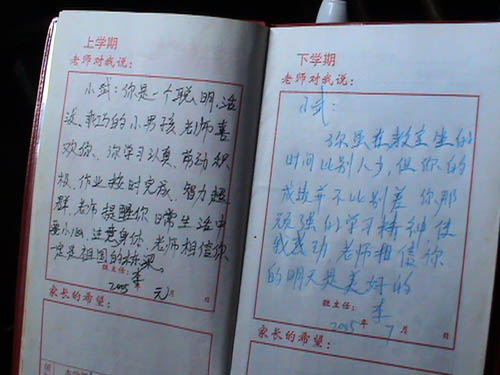 上学期
老师对我说：
小武：你是一个聪明、活
泼、乖巧的小男孩，老师喜
欢你、你学习认真、劳动积
极、作业按时完成、智力超
群，老师提醒你日常生活中
要小心，注意身体，老师相信你
一定是祖国的栋梁。
班主任：李
2005年元月 日
家长的希望：
下学期
老师对我说：
小武：
你虽在教室里的
时间比别人少，但你的
成绩并不比别差 你那
顽强的学习精神使
我感动 老师相信你
的明天是美好的
班主任：李
2005年7月 日
家长的希望：